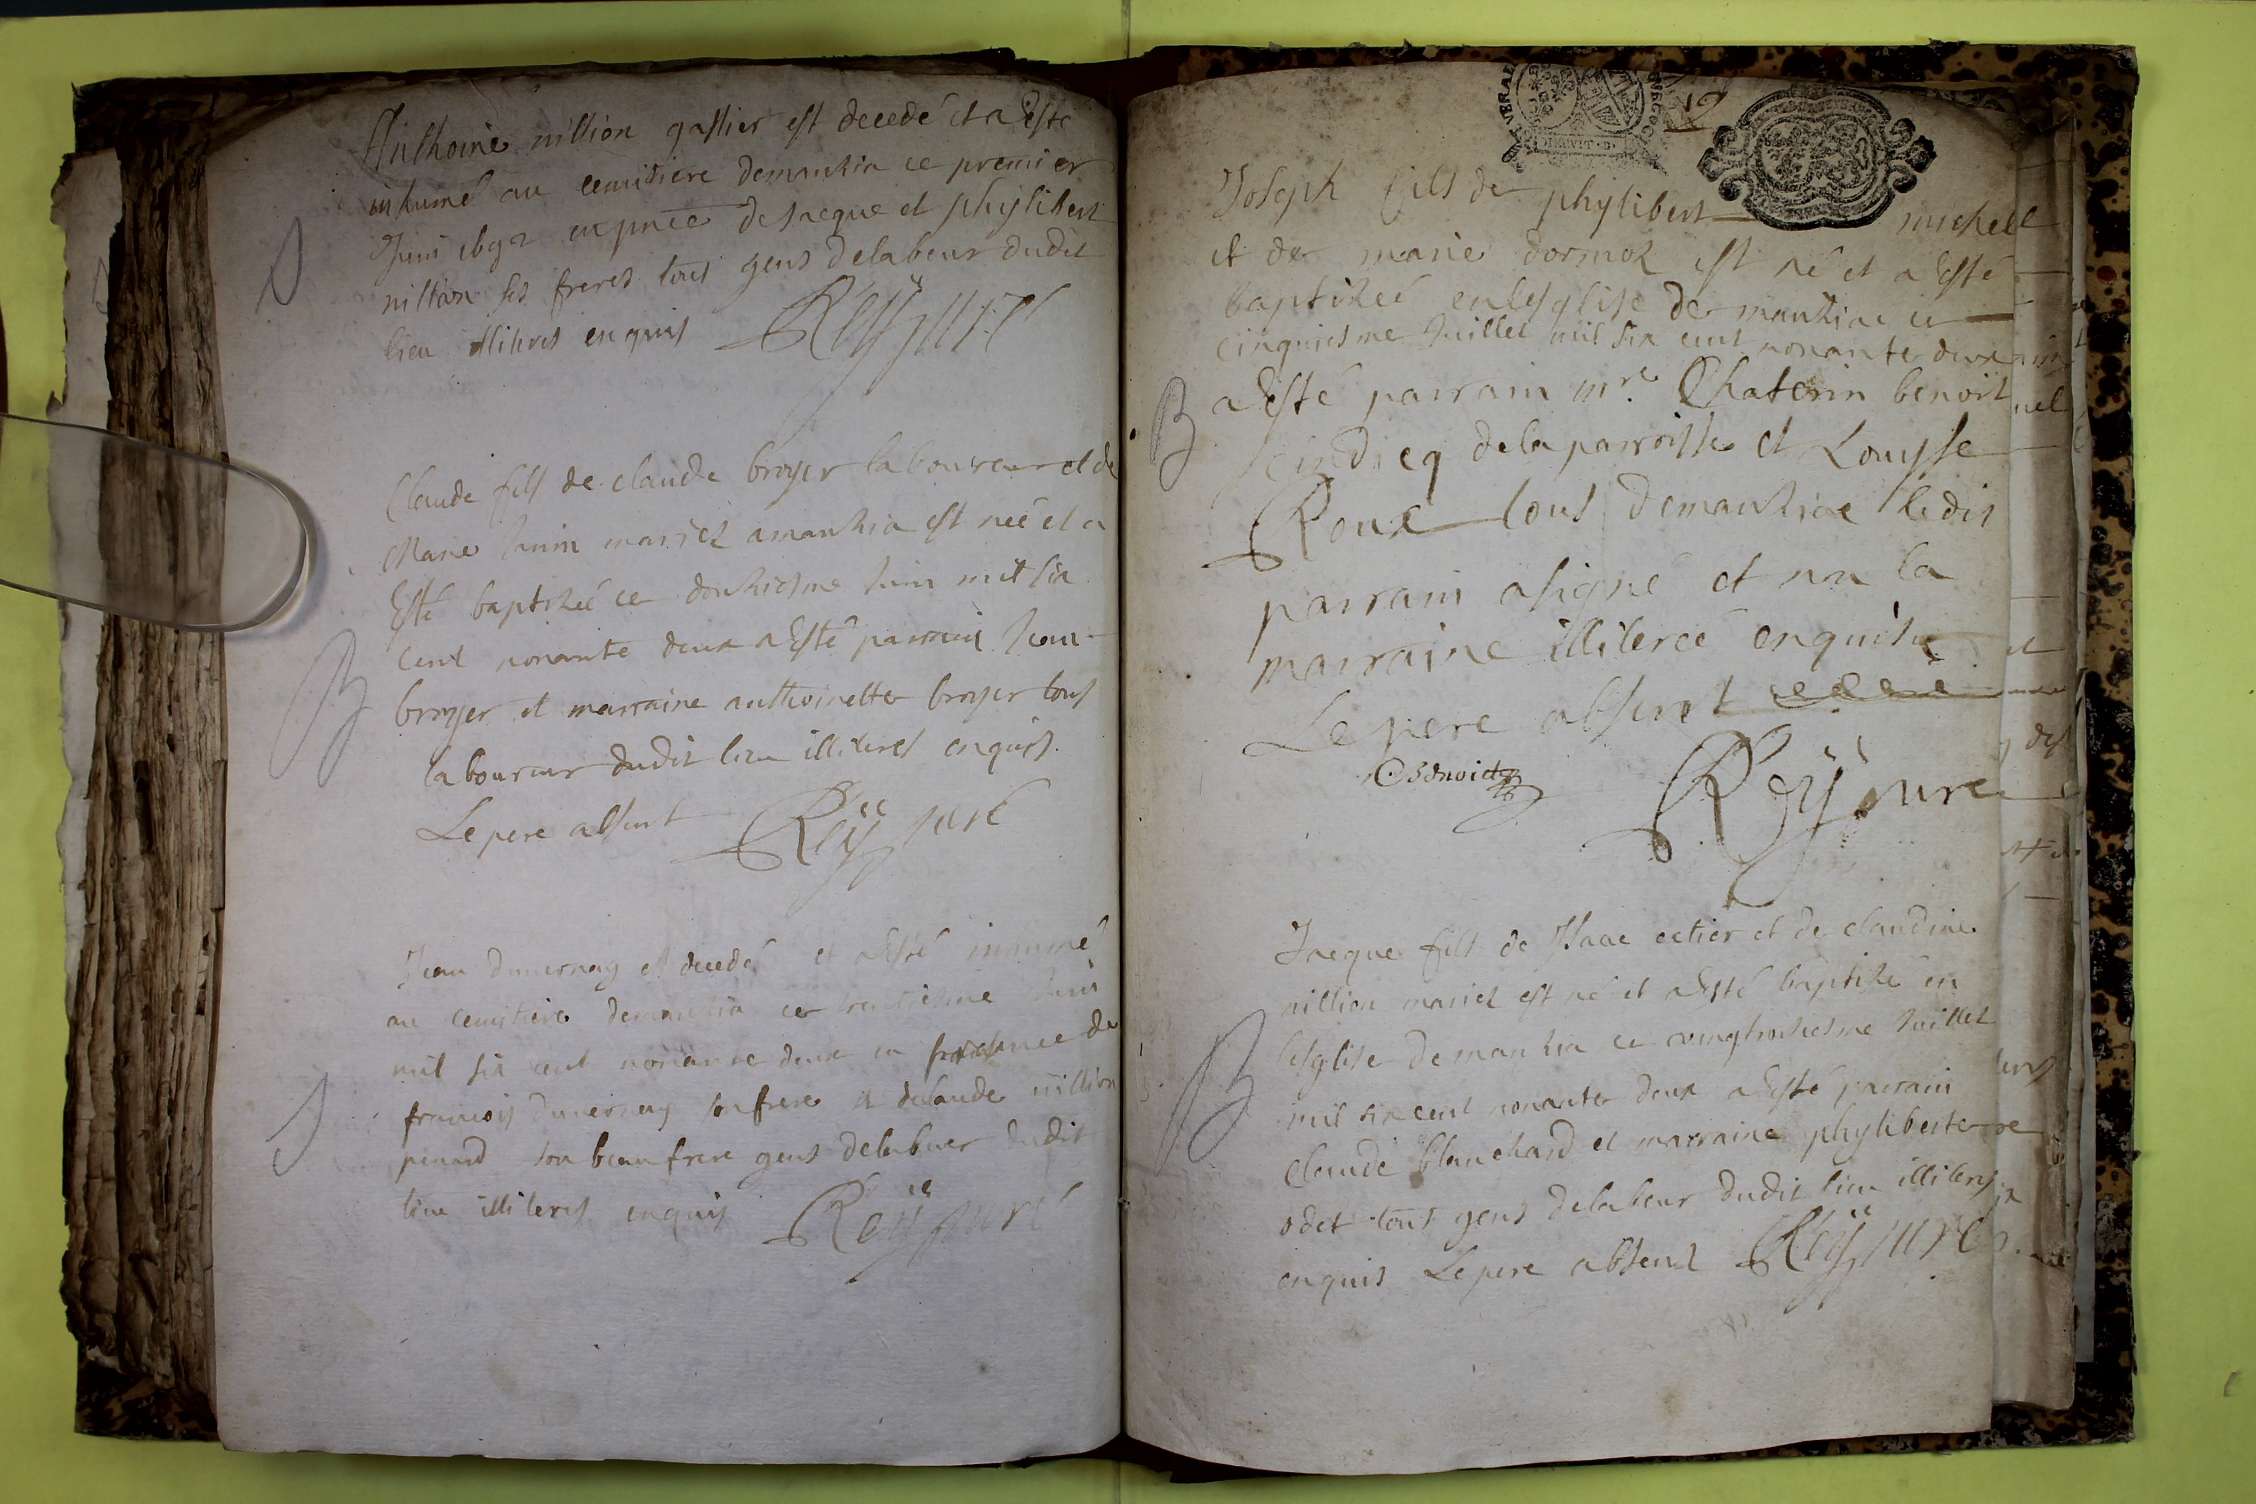 Anthoine nillion gastier est decedé et a Esté
inhumé au cemitiere demanhia ce premier
Juin en pnce de Jacque et phylibert
nillion ses freres tous gens delabeur dudit
lieu illiteres enquis Reÿ curé
Claude fils de claude broyer laboureur et de
Marie Janin mariez amanhia est neé et a
Esté baptizeé ce douziesme Juin mil six
cent nonante deux a Esté parrain Jean
broyer et marraine anthoinette broyer tous
laboureur dudit lieu illiteres enquis
Le pere absent Reÿ curé
Jean duuernay est decedé et a Esté inhumé
au cemitiere demanhia ce trentiesme Juin
mil six cent nonante deux en presence de
francois duuernay son frere et de claude nillion
penard son beaufrere gens delabeur dudit
lieu illiteres enquis Reÿ curé
12
Joseph fils de phylibert michell
et de marie dormoz est né et a Esté
baptizeé en lesglise de manhiae ce
cinquiesme Juillet mil six cent nonante deux
a Esté parrain mre Chaterin benoit
scindicq dela parroisse et Louysse
Roux tous demanhiae ledit
parrain asigné et non la
marraine illiteree enquise
Le pere absent
C benoict
Reÿ curé
Jacque fils de Isaac cetier et de claudine
nillion mariez est né et a Esté baptizé en
lesglise demanhia ce vingtroisiesme Juillet
mil six cent nonante deux a Esté parrain
Claude blanchard et marraine phyliberte
odet tous gens delabeur dudit lieu illiteres
enquis Le pere absent Reÿ curé